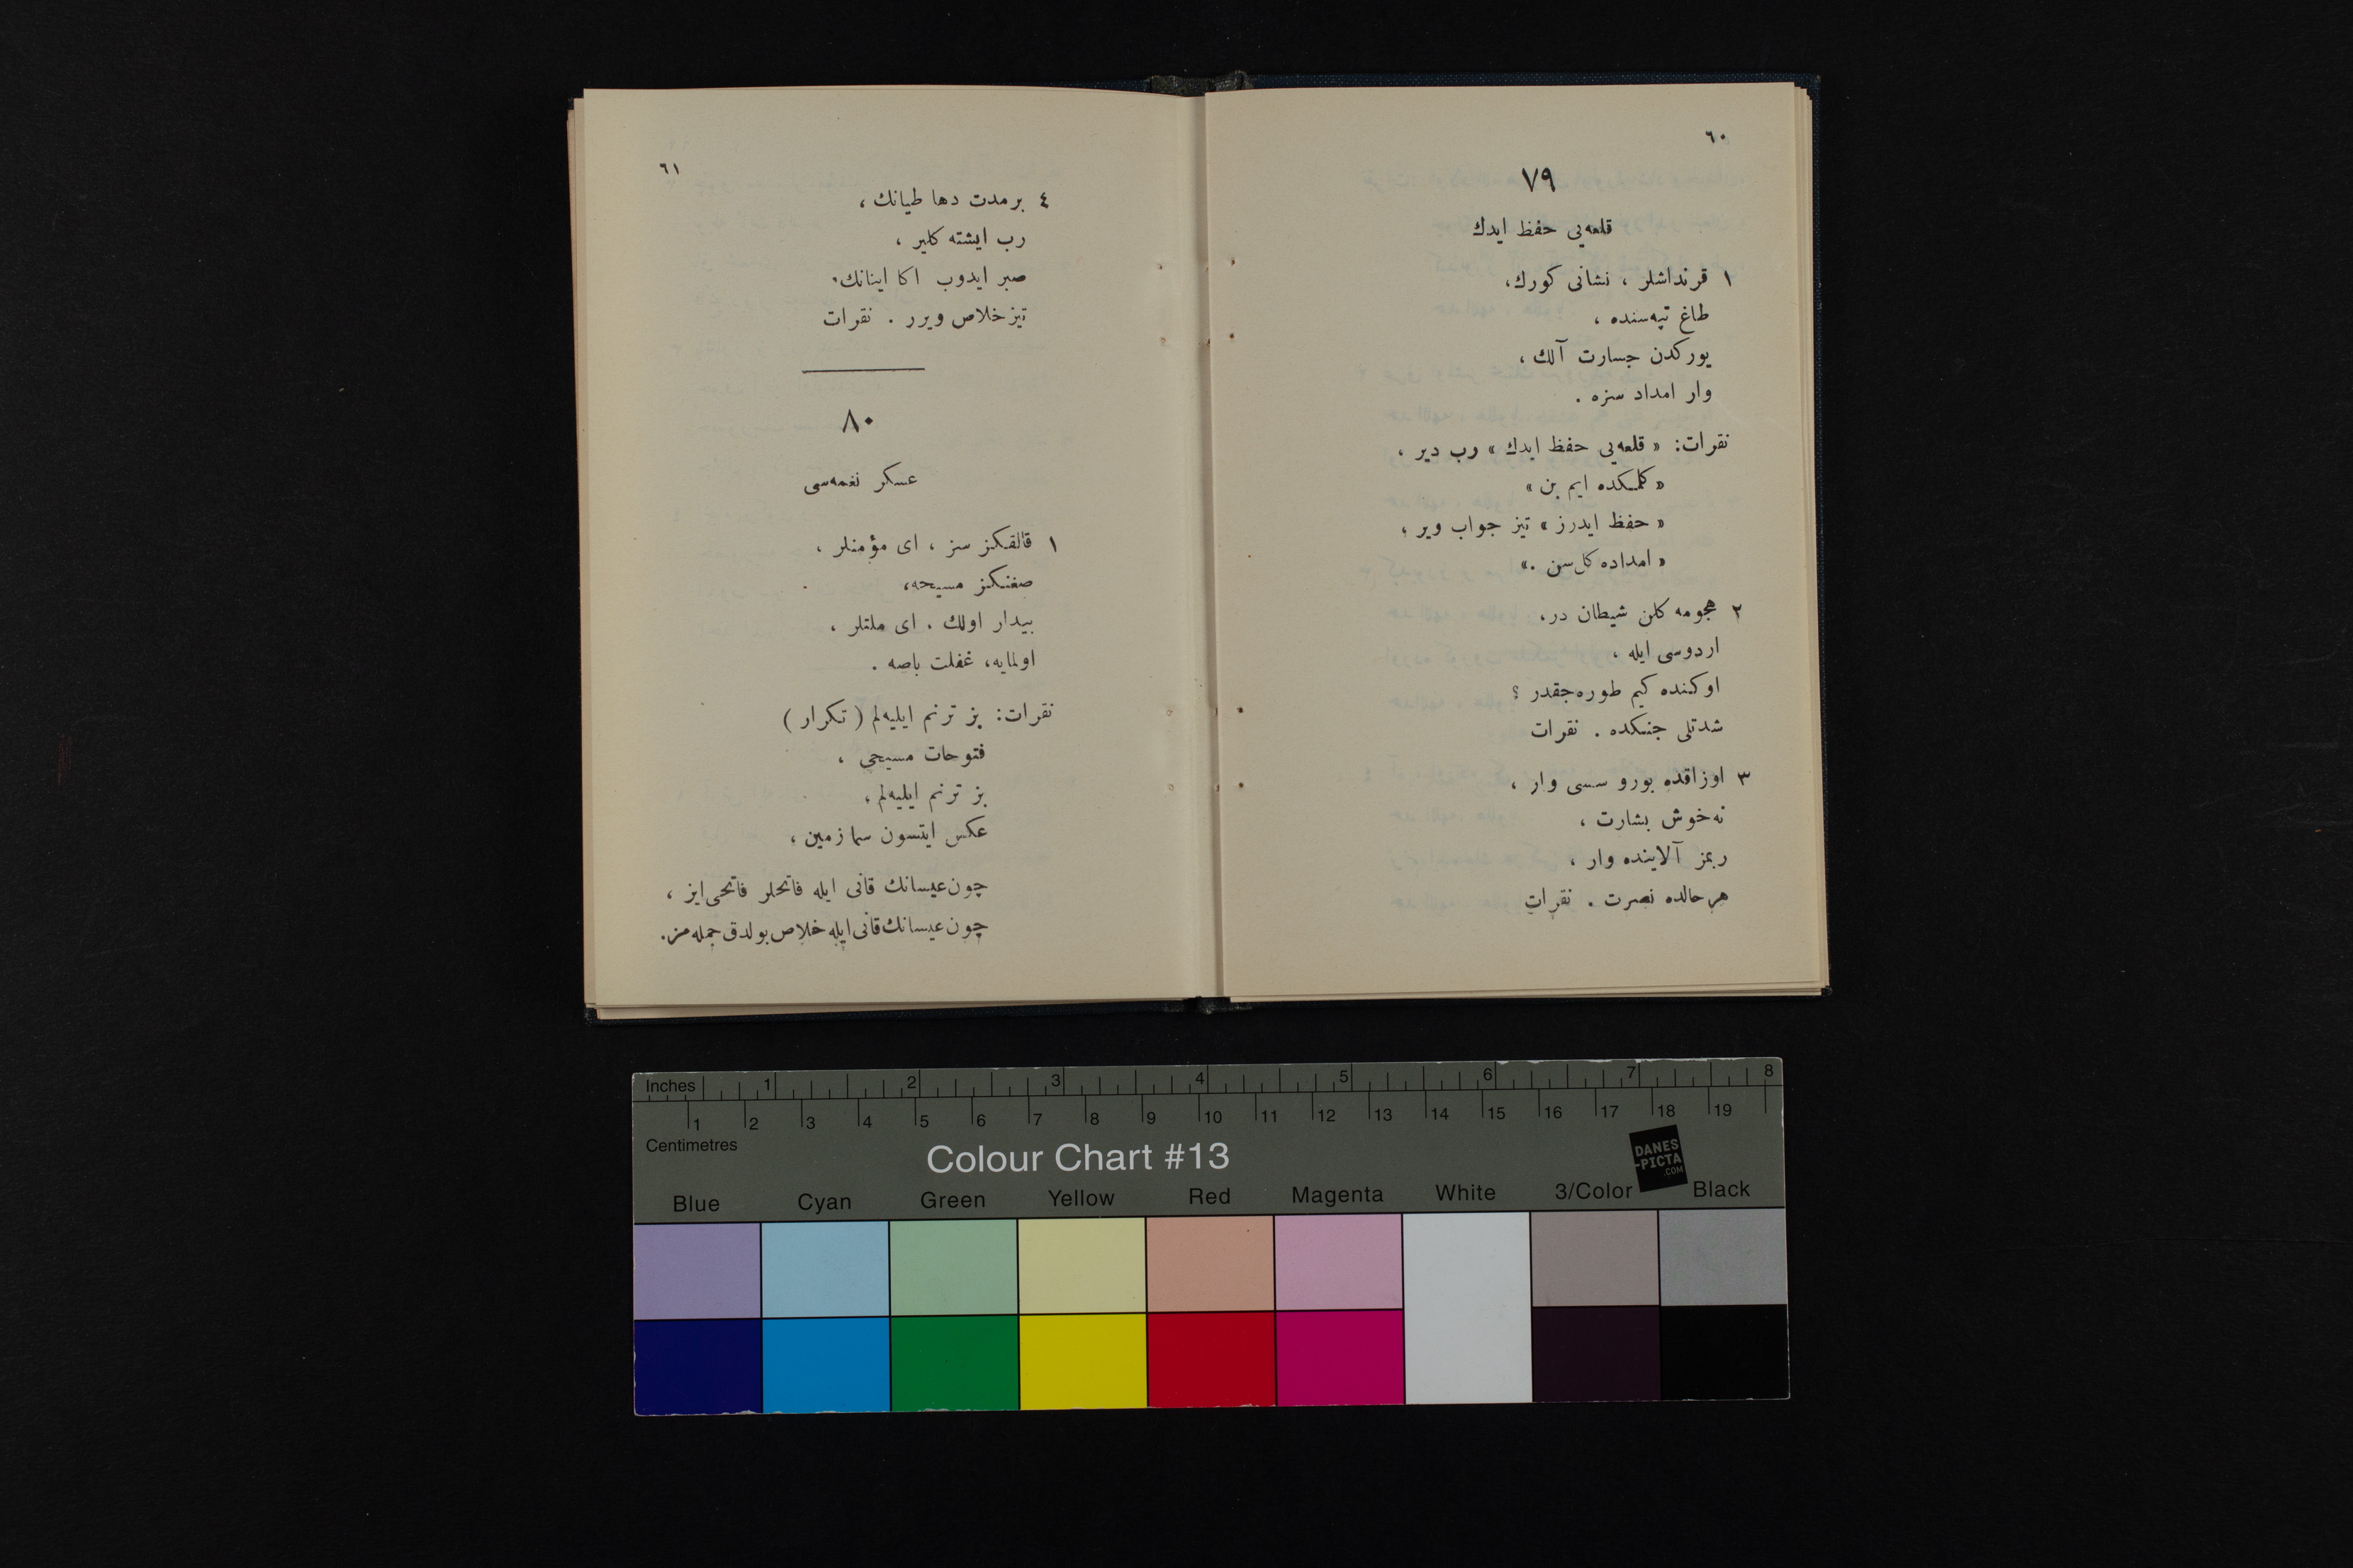 ٦٠
٧٩
قلعه‌یی حفظ ایدك
١ قرنداشلر ، نشانی كورك،
طاغ تپه‌سنده ،
یوركدن جسارت آلك ،
وار امداد سزه .
نقرات: « قلعه‌یی حفظ ایدك » رب دیر ،
« كلمكده ایم بن »
« حفظ ایدرز » تیز جواب ویر ،
« امداده كل سن .»
٢ هجومه كلن شیطان در،
اردوسی ایله ،
اوكنده كیم طوره‌جقدر ؟
شدتلی جنكده . نقرات
٣ اوزاقده بورو سسی وار ،
نه خوش بشارت ،
ربمز آلاینده وار ،
هر حالده نصرت . نقرات
٦١
٤ بر مدت دها طیانك ،
رب ایشته كلیر ،
صبر ایدوب اكا اینانك،
تیز خلاص ویرر . نقرات
٨٠
عسكر نغمه‌سی
١ قالقكز سز ، ای مؤمنلر ،
صغنكز مسیحه،
بیدار اولك . ای ملتلر ،
اولمایه، غفلت باصه .
نقرات: بز ترنم ایلیه‌لم ( تكرار )
فتوحات مسیحی ،
بز ترنم ایلیه‌لم ،
عكس ایتسون سما زمین ،
چون عیسانك قانی ایله فاتحلر فاتحی ایز ،
چون عیسانك قانی ایله خلاص بولدق جمله‌مز.
Inches 1 2 3 4 5 6 7 8
1 2 3 4 5 6 7 8 9 10 11 12 13 14 15 16 17 18 19
Centimetres
Colour Chart #13
DANES
-PICTA
.COM
Blue Cyan Green Yellow Red Magenta White 3/Color Black